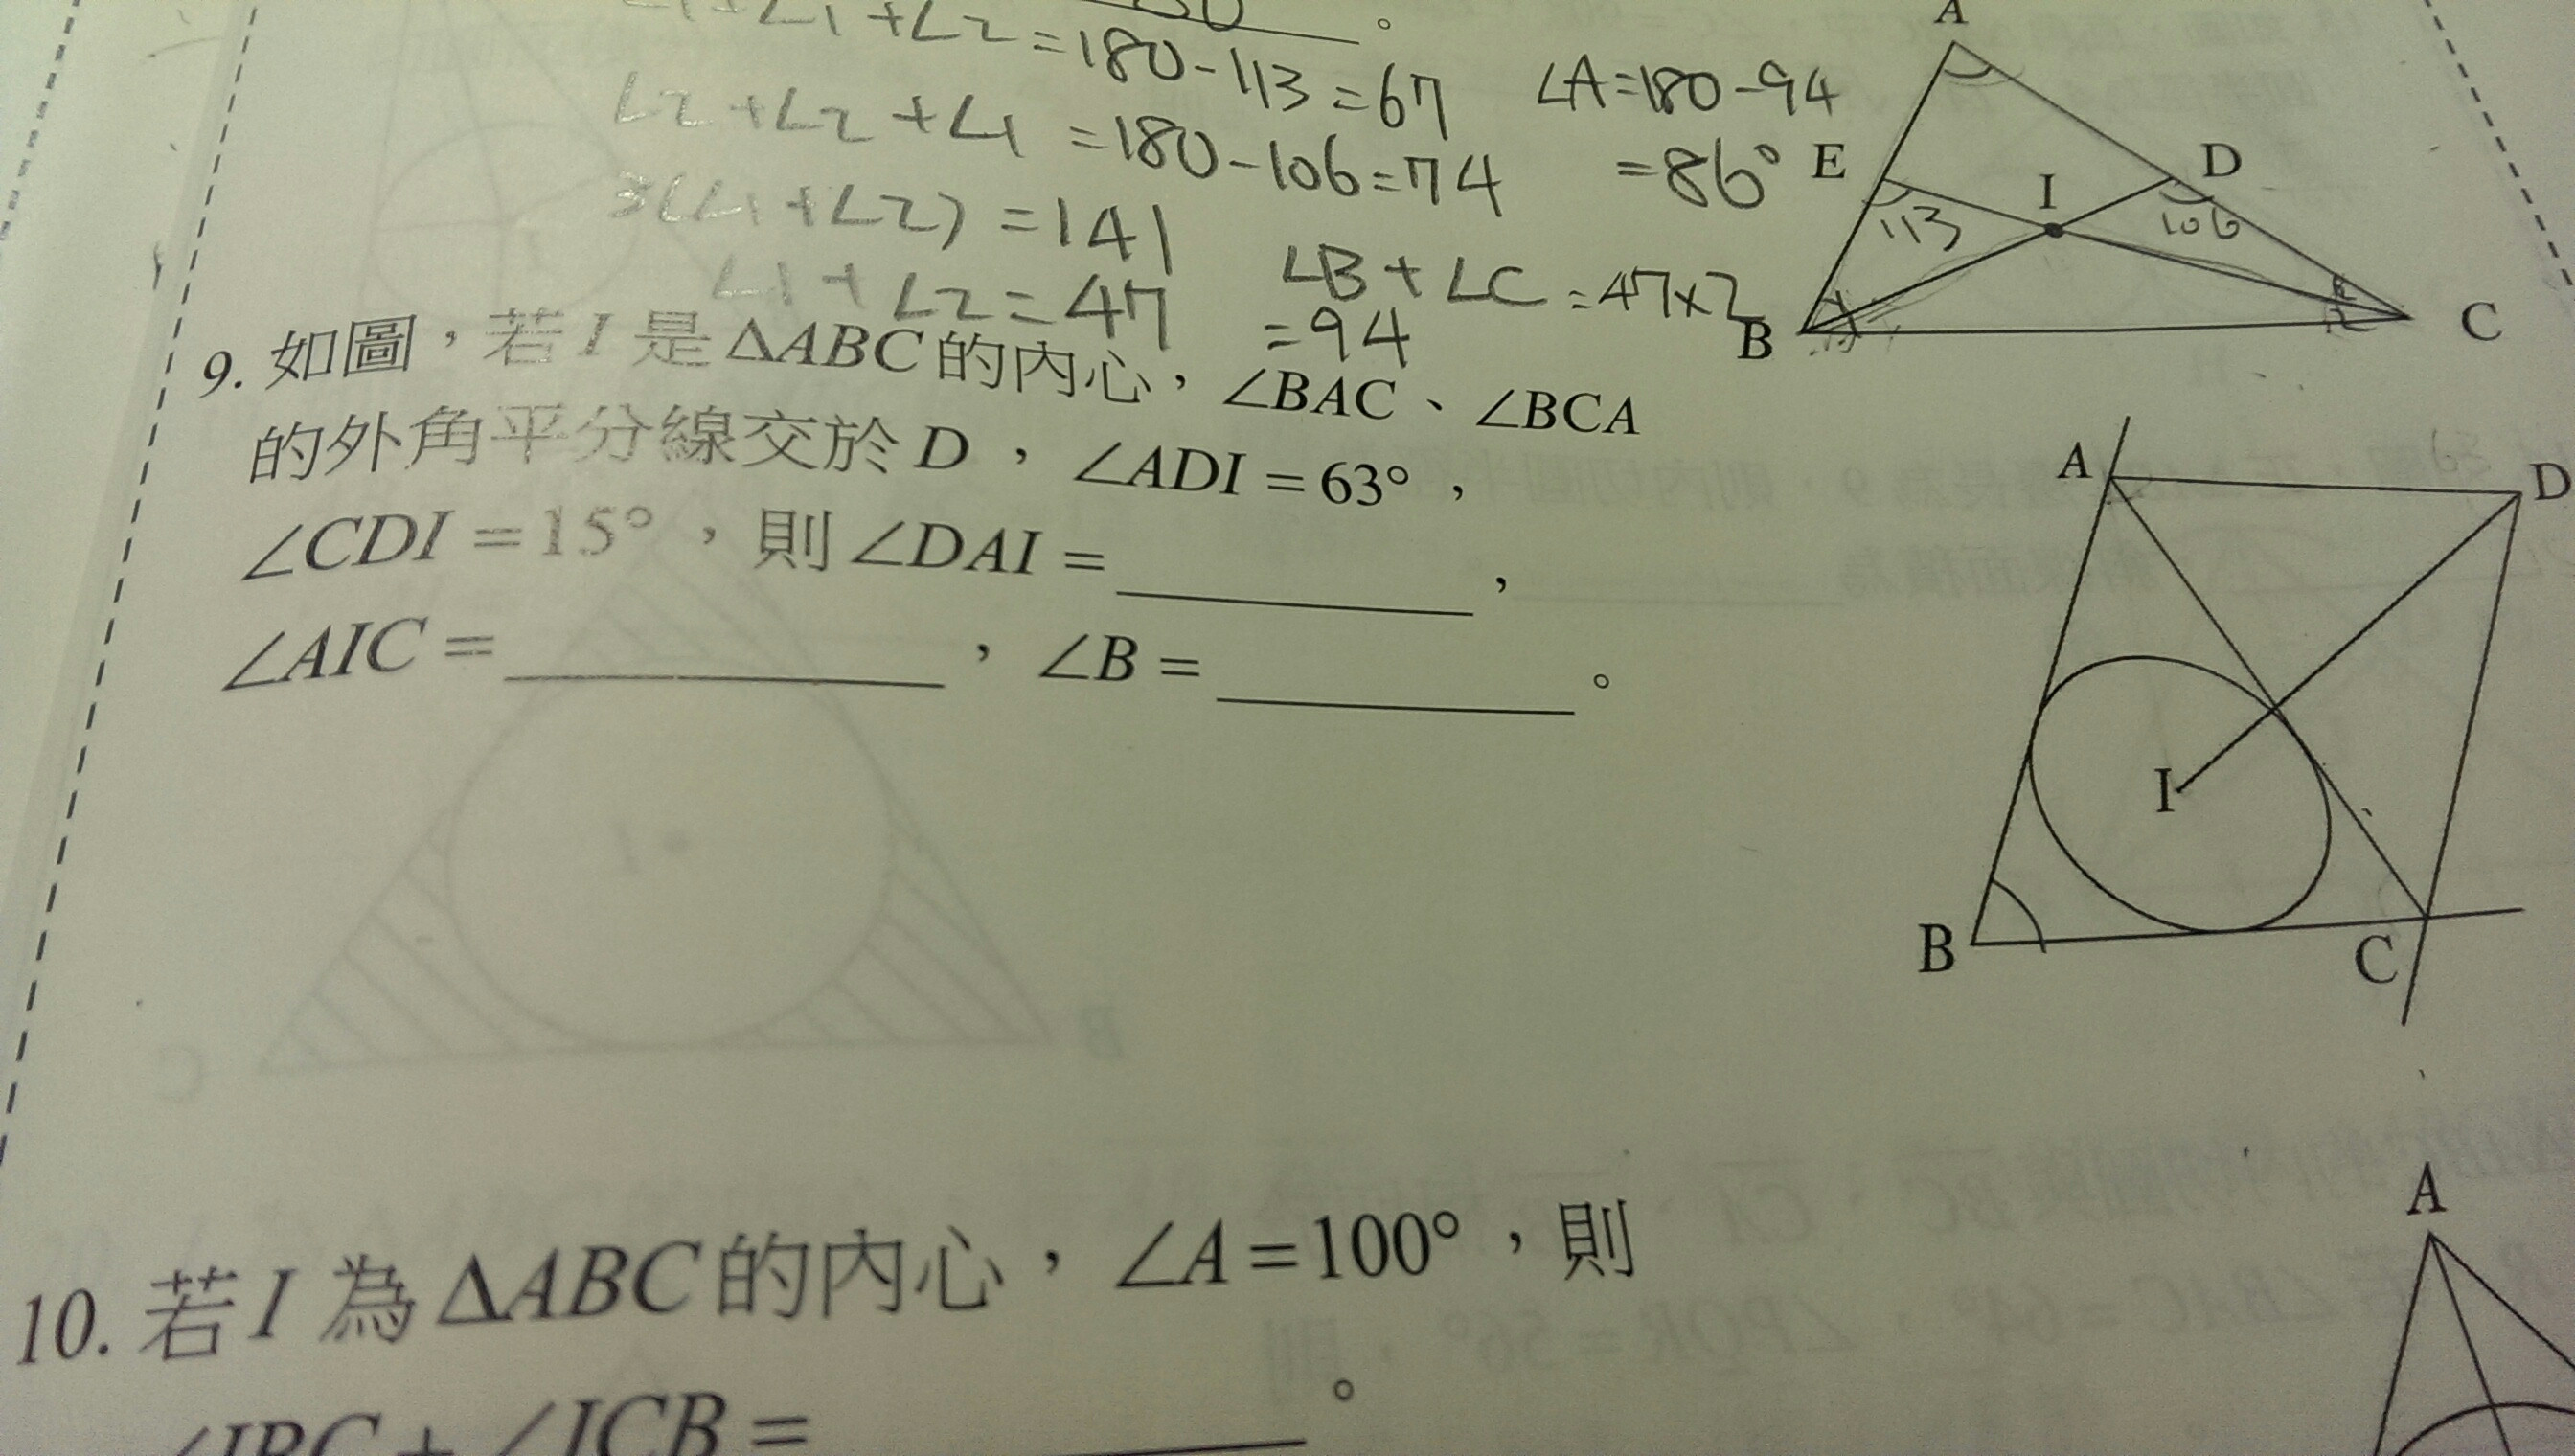 ∠1+∠1+∠2=180-113=67
∠2+∠2+∠1=180-106=74
3(∠1+∠2)=141
∠1+∠2=47
∠B+∠C=47×2
=94
∠A=180-94
=86°
A
E
D
I
113
106
B
C
9. 如圖，若I是ΔABC的內心，∠BAC、∠BCA
的外角平分線交於D，∠ADI=63°，
∠CDI=15°，則∠DAI=，
∠AIC=，∠B=。
A
D
I
B
C
10. 若I為ΔABC的內心，∠A=100°，則
∠IBC+∠ICB=。
A